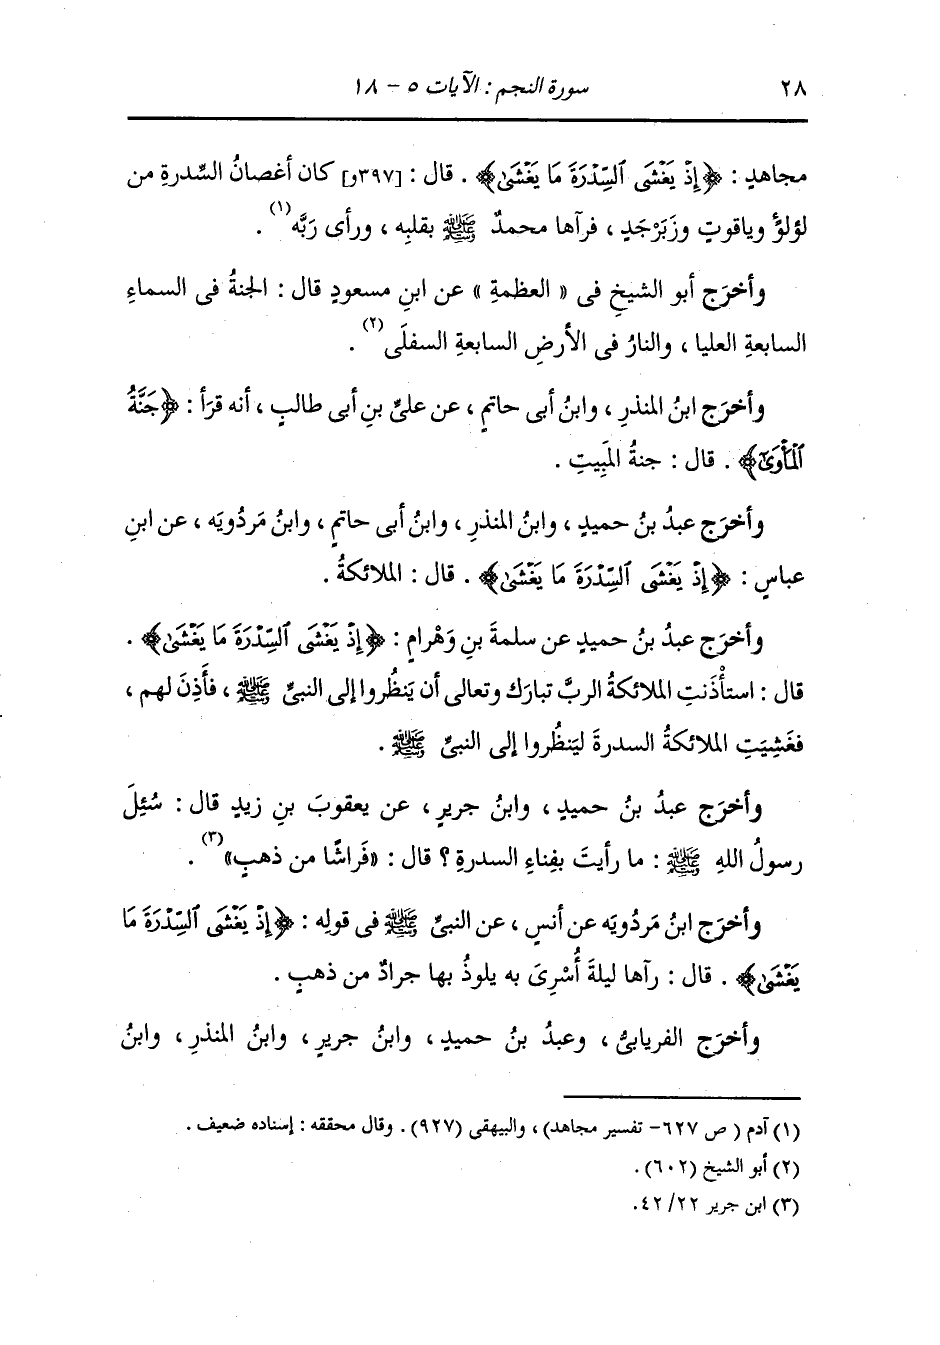 ٢٨ سورة النجم : الآيات ٥ - ١٨
مجاهدٍ : ﴿إِذْ يَغْشَى ٱلسِّدْرَةَ مَا يَغْشَىٰ﴾ . قال : [٣٩٧و] كان أغصانُ السِّدرةِ من
لؤلؤٍ وياقوتٍ وزَبَرْجَدٍ ، فرآها محمدٌ ﷺ بقلبِه ، ورأى رَبَّه(١) .
وأخرَج أبو الشيخِ فى « العظمةِ » عن ابنِ مسعودٍ قال : الجنةُ فى السماءِ
السابعةِ العليا ، والنارُ فى الأرضِ السابعةِ السفلَى(٢) .
وأخرَج ابنُ المنذرِ ، وابنُ أبى حاتمٍ ، عن علىِّ بنِ أبى طالبٍ ، أنه قرَأ : ﴿جَنَّةُ
ٱلْمَأْوَىٰٓ﴾ . قال : جنةُ المَبِيتِ .
وأخرَج عبدُ بنُ حميدٍ ، وابنُ المنذرِ ، وابنُ أبى حاتمٍ ، وابنُ مَردُويَه ، عن ابنِ
عباسٍ : ﴿إِذْ يَغْشَى ٱلسِّدْرَةَ مَا يَغْشَىٰ﴾ . قال : الملائكةُ .
وأخرَج عبدُ بنُ حميدٍ عن سلمةَ بنِ وَهْرامٍ : ﴿إِذْ يَغْشَى ٱلسِّدْرَةَ مَا يَغْشَىٰ﴾ .
قال : استأْذَنتِ الملائكةُ الربَّ تبارَك وتعالى أن يَنظُروا إلى النبىِّ ﷺ ، فأَذِنَ لهم ،
فغَشِيَتِ الملائكةُ السدرةَ ليَنظُروا إلى النبىِّ ﷺ .
وأخرَج عبدُ بنُ حميدٍ ، وابنُ جريرٍ ، عن يعقوبَ بنِ زيدٍ قال : سُئِلَ
رسولُ اللهِ ﷺ : ما رأيتَ بفِناءِ السدرةِ ؟ قال : «فَراشًا من ذهبٍ»(٣) .
وأخرَج ابنُ مَردُويَه عن أنسٍ ، عن النبىِّ ﷺ فى قولِه : ﴿إِذْ يَغْشَى ٱلسِّدْرَةَ مَا
يَغْشَىٰ﴾ . قال : رآها ليلةَ أُسْرِىَ به يلوذُ بها جرادٌ من ذهبٍ .
وأخرَج الفريابىُّ ، وعبدُ بنُ حميدٍ ، وابنُ جريرٍ ، وابنُ المنذرِ ، وابنُ
(١) آدم ( ص ٦٢٧- تفسير مجاهد) ، والبيهقى (٩٢٧) . وقال محققه : إسناده ضعيف .
(٢) أبو الشيخ (٦٠٢) .
(٣) ابن جرير ٢٢/ ٤٢.